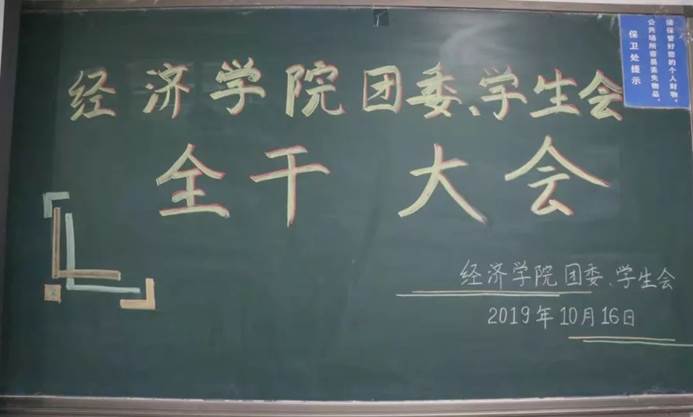 经济学院团委、学生会
全干大会
经济学院团委、学生会
2019年10月16日
请保管好您的个人财物，
公共场所容易丢失物品，
保卫处提示